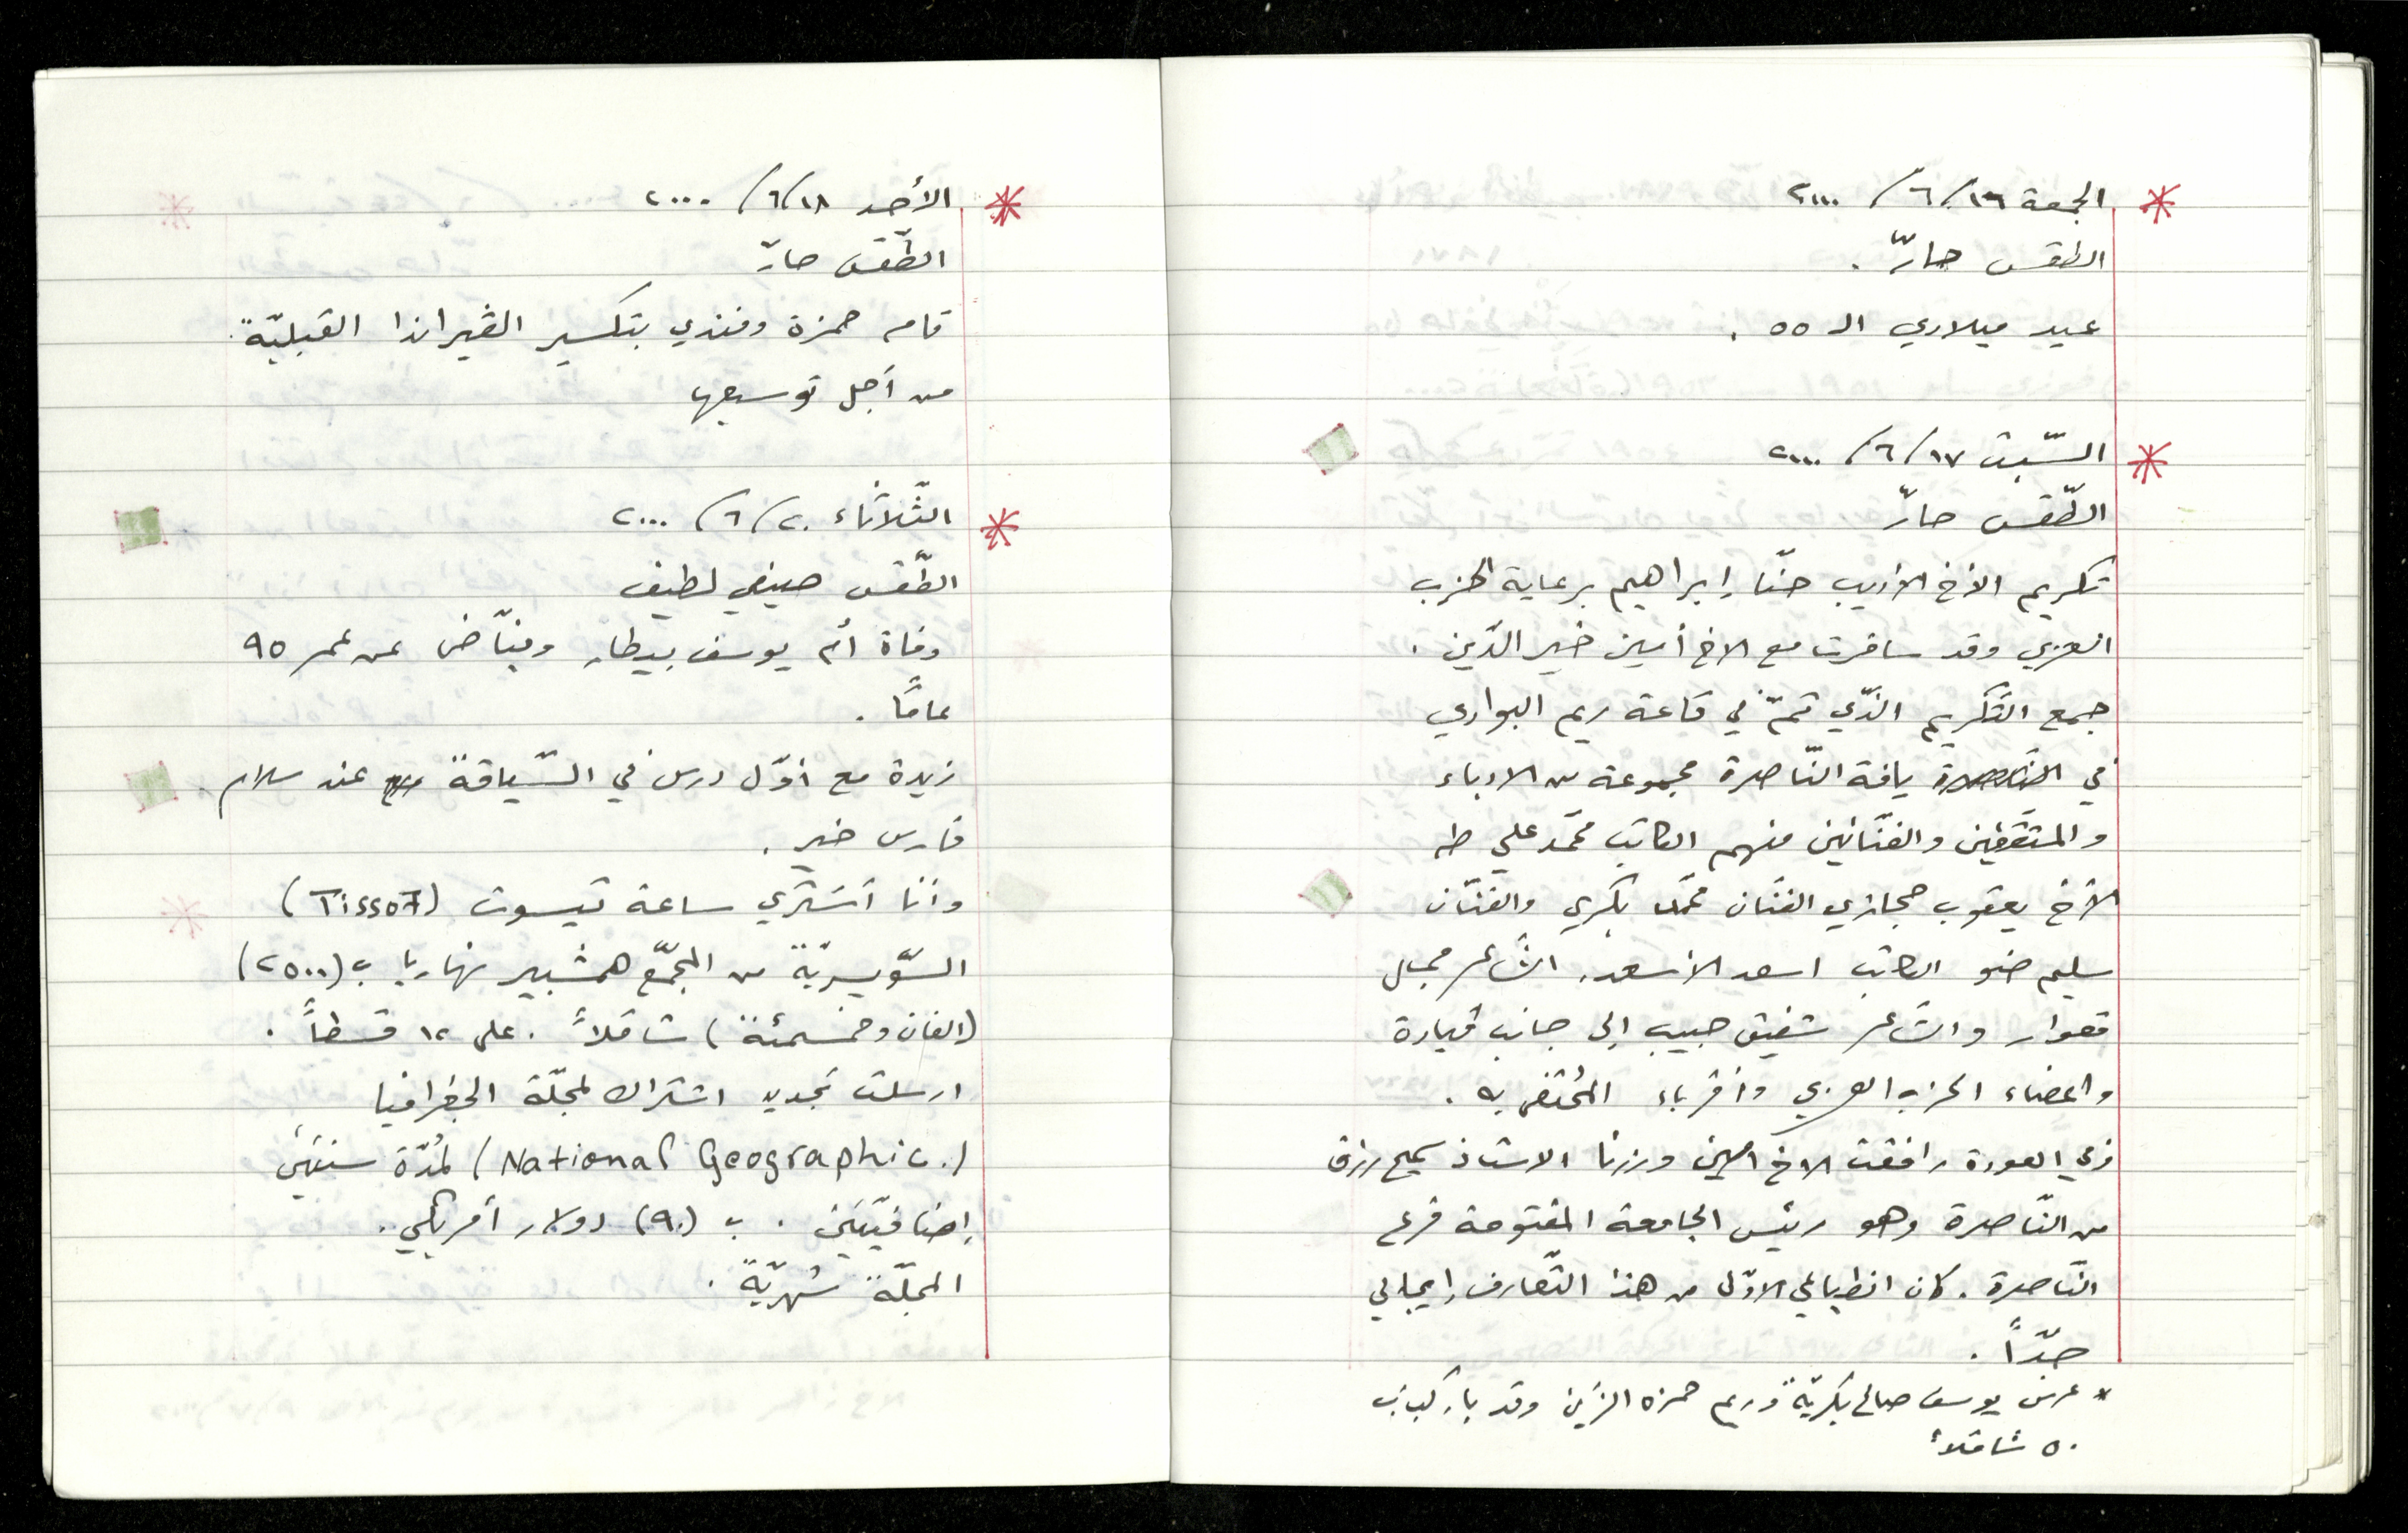 * الجمعة ١٦/٦/٢٠٠٠
الطقس حارّ.
عيد ميلادي الـ ٥٥.
* السّبت ١٧/٦/٢٠٠٠
الطّقس حارّ
تكريم الأخ الأديب حنّا إبراهيم برعاية الحزب
العربي وقد سافرت مع الاخ أمين خير الدّين.
جمع التّكريم الذّي تمّ في قاعة ريم البوادي
في يافة النّاصرة مجموعة من الادباء
والمثقّفين والفنّانين منهم الكاتب محمّد علي طه
الأخ يعقوب حجازي الفنّان محمّد بكري والفنّان
سليم ضو الكاتب اسعد الأسعد. الشّاعر جمال
قعوار والشّاعر شفيق حبيب إلى جانب قيادة
واعضاء الحزب العربي وأقرباء المُحتفى به.
وفي العودة رافقت الاخ امين وزرنا الاستاذ سميح رزق
من النّاصرة وهو رئيس الجامعة المفتوحة فرع
النّاصرة. كان انطباعي الاوّلى من هذا التّعارف إيجابي
جدّاً.
* عرس يوسف صالح بكريّة وريم حمزه الزّين وقد باركت ب
٥٠ شاقلاً
* الأحد ١٨/٦/٢٠٠٠
الطّقس حارّ
قام حمزة وفندي بتكسير الڤيراندا القبليّة
من أجل توسيعها
* الثّلاثاء ٢٠/٦/٢٠٠٠
الطّقس صيفي لطيف
وفاة أم يوسف بيطار عن عمر ٩٥
عامًا.
زبدة مع أوّل درس في السّياقة عند سلام
فارس خير.
وأنا أشتري ساعة تيسوت (Tissot)
السّويسريّة من المجمّع همشبير نهاريا ب (٢٥٠٠)
(الفان وخمسمئة) شاقلاً. على ١٢ قسطاً.
ارسلت تجديد اشتراك لمجلّة الجغرافيا
(National Geographic.) لمُدّة سنتَين
إضافيّتَين. ب (٩٠) دولار أمريكي.
المجلّة شهريّة.